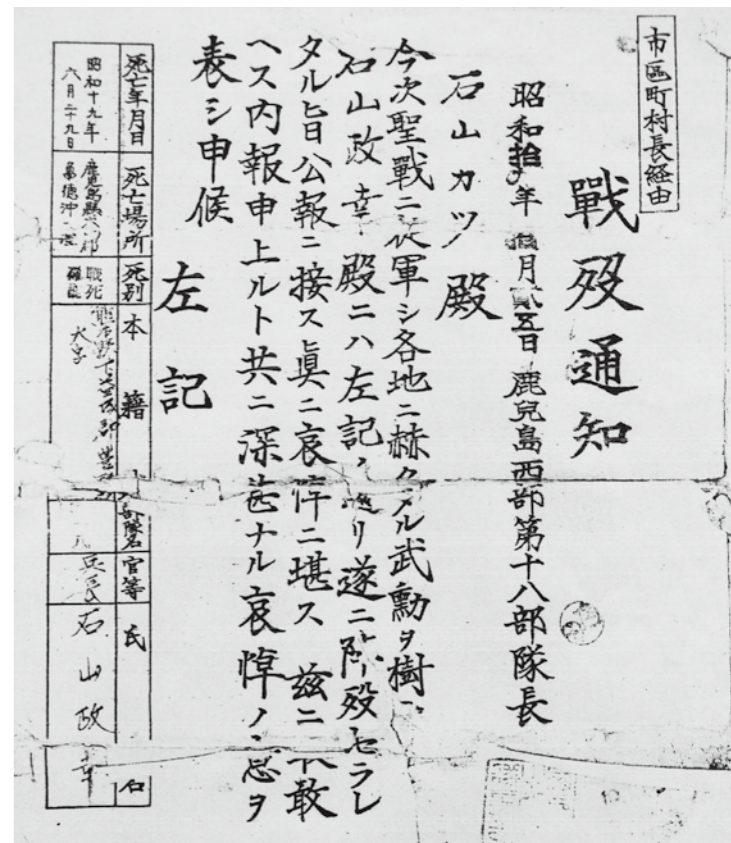 市區町村長経由
戰歿通知
昭和拾年 月貳五日 鹿兒島西部第十八部隊長
石山カツ殿
今次聖戰ニ従軍シ各地ニ赫クタル武勳ヲ樹
石山政幸殿ニハ左記ノ通リ遂ニ陣歿セラレ
タル旨公報ニ接ス眞ニ哀悼ニ堪ス 茲ニ不敢
ヘス内報申上ルト共ニ深甚ナル哀悼ノ思ヲ
表シ申候
左記
死亡年月日 死亡場所 死別 本籍 部隊名 官等 氏名
昭和十九年六月二十九日
鹿兒島縣大島郡
亀徳沖
戰死
熊本縣下益城郡豊
大字
兵長
石山政幸